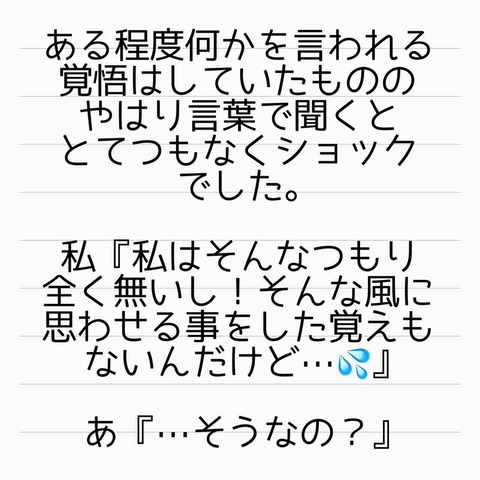 ある程度何かを言われる
覚悟はしていたものの
やはり言葉で聞くと
とてつもなくショック
でした。
私『私はそんなつもり
全く無いし！そんな風に
思わせる事をした覚えも
ないんだけど…💦』
あ『…そうなの？』